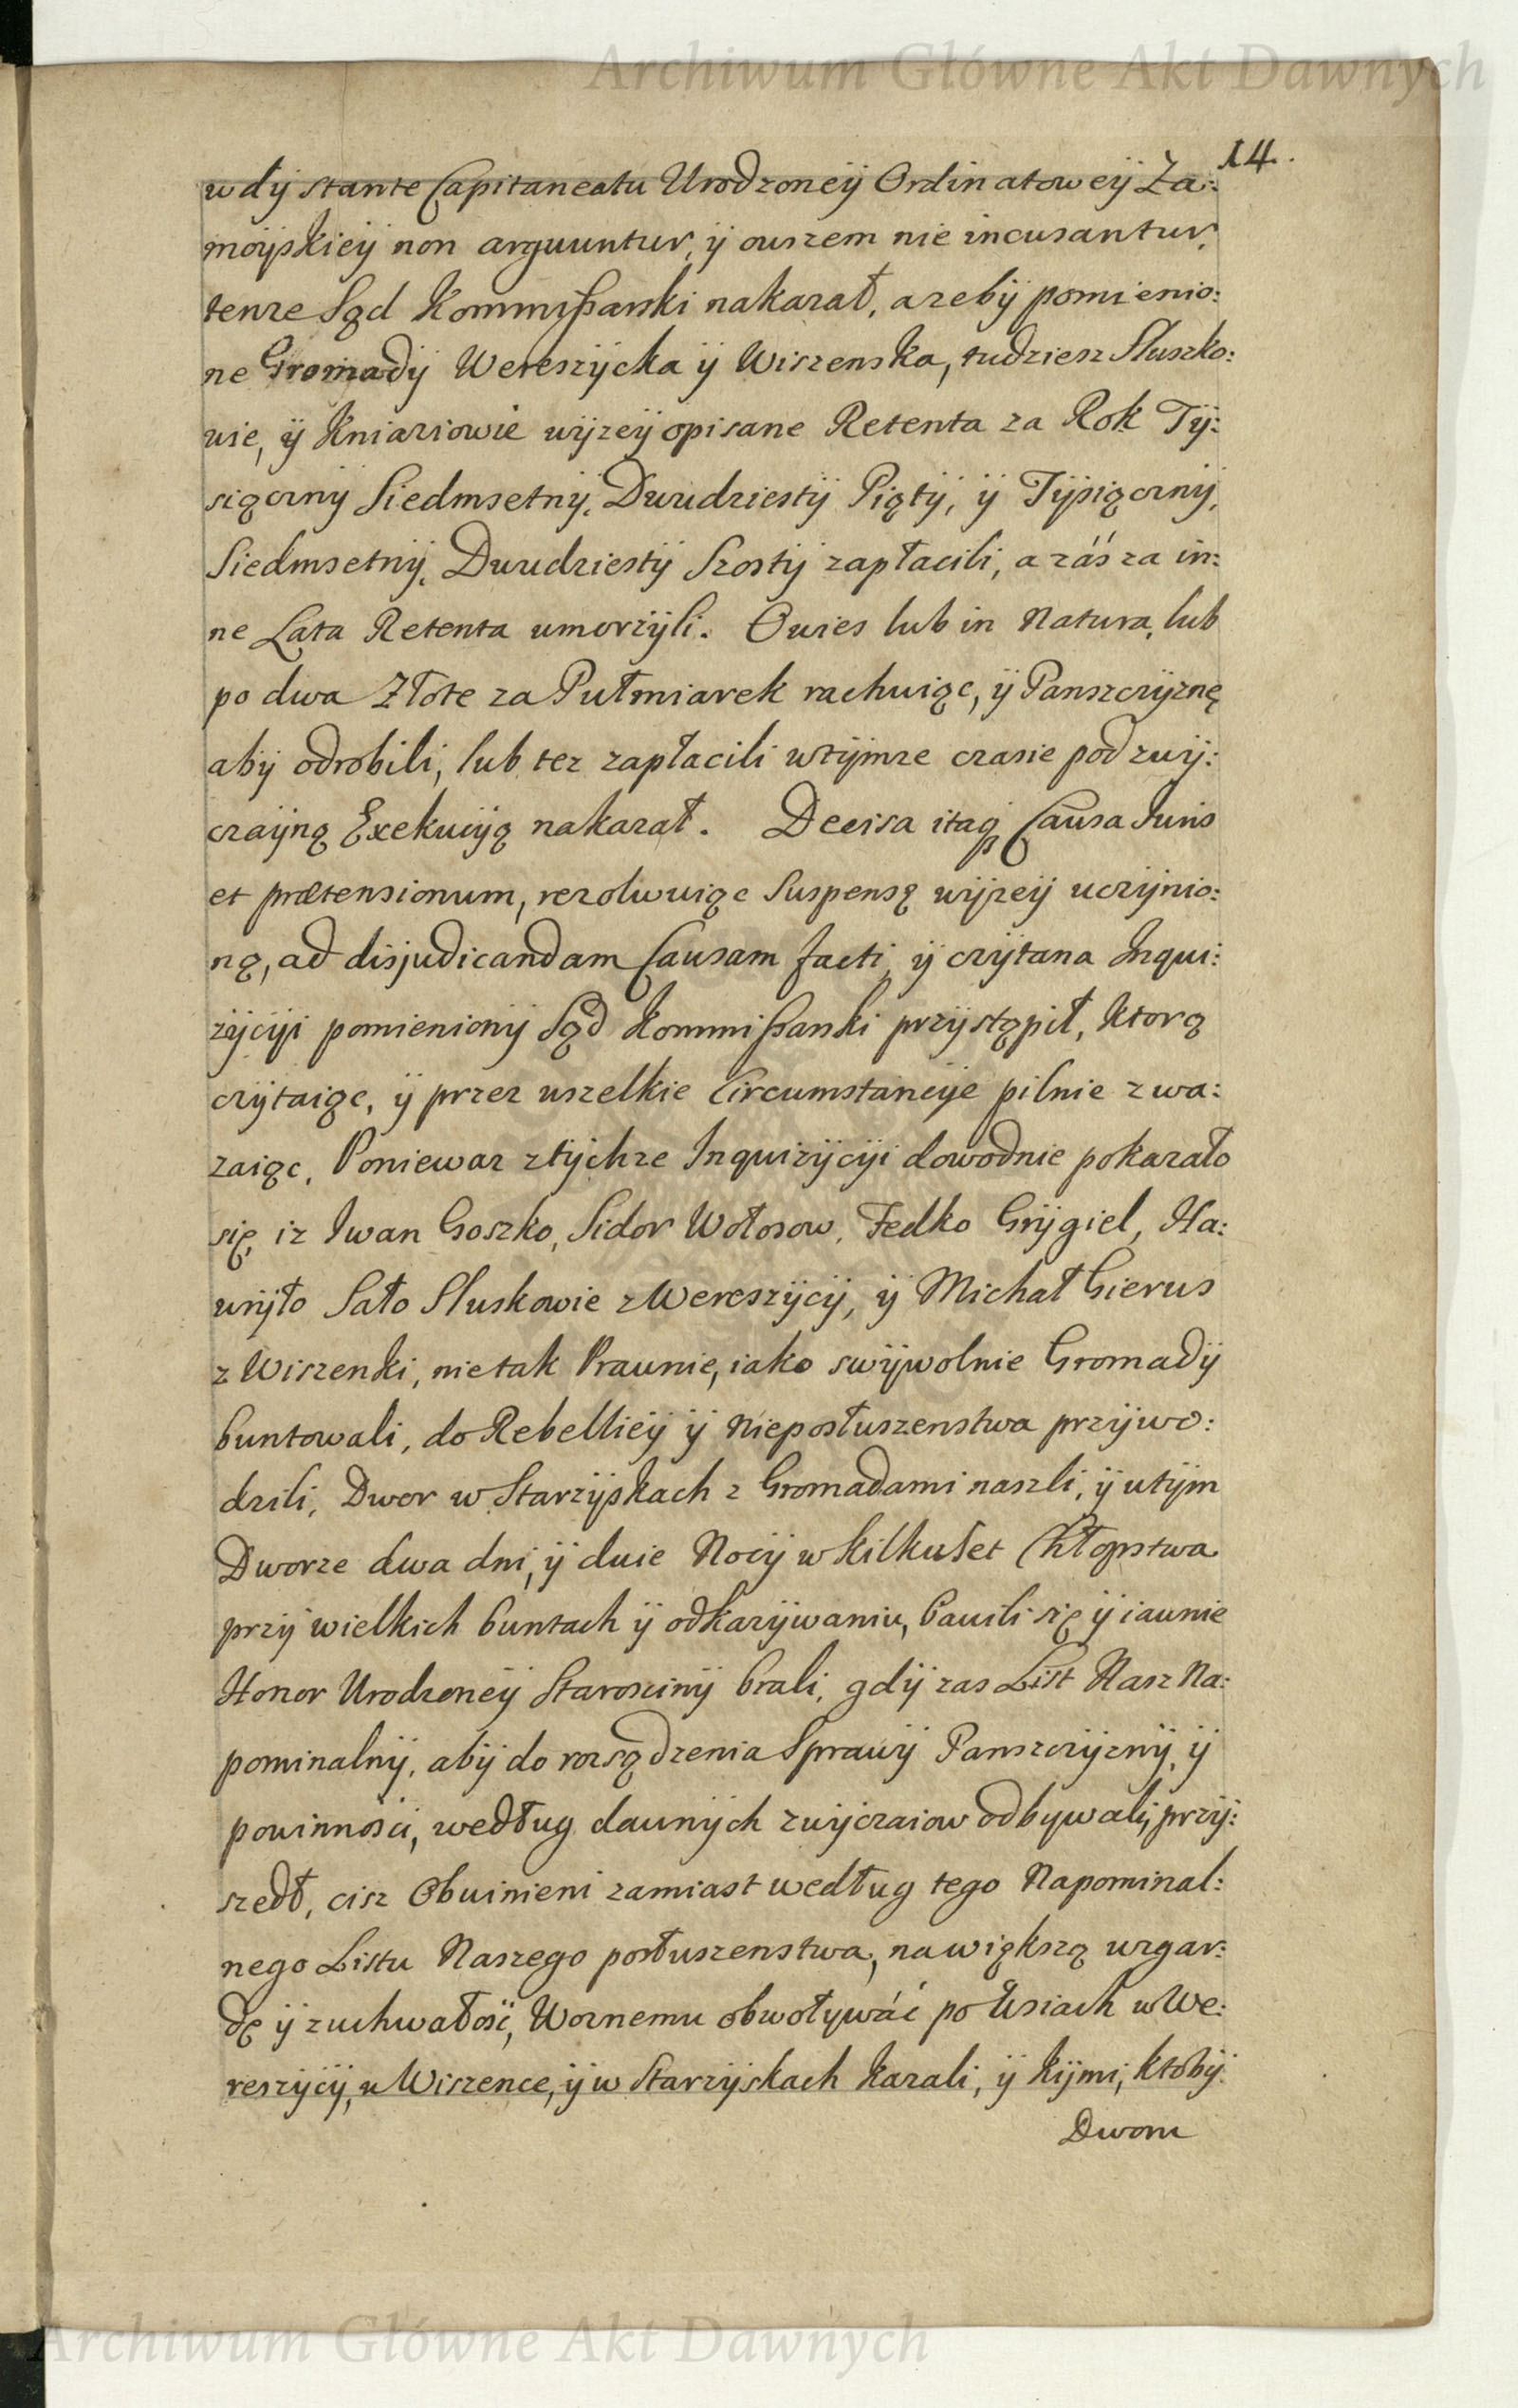 Archiwum Główne Akt Dawnych
14.
w dÿ stante Capitaneatu Urodzoneÿ Ordinatoweÿ Za:
moÿskieÿ non arguuntur, ÿ owszem nie incusantur,
tenze Sąd Kommißarski nakazał, azebÿ pomienio:
ne Gromadÿ Wereszÿcka ÿ Wiszenska, tudziesz Sluszko:
wie, ÿ Kniaziowie wÿzeÿ opisane Retenta za Rok Tÿ:
siącznÿ Siedmsetnÿ, Dwudziestÿ Piątÿ, ÿ Tÿsiącznÿ,
Siedmsetnÿ, Dwudziestÿ Szostÿ zapłacili, a záś za in:
ne Lata Retenta umorzÿli. Owies lub in Natura, lub
po dwa Złote za Pułmiarek rachuiąc, ÿ Panszczÿznę
abÿ odrobili, lub tez zapłacili wtÿmze czasie pod zwÿ:
czaÿną Exekucÿą nakazał. Decisa itaq Causa Juris
et prætensionum, rezolwuiąc Suspensę wÿzeÿ uczÿnio:
ną, ad disjudicandam Causam facti, ÿ czÿtana Inqui:
zÿcÿi pomienionÿ Sąd Kommißarski przÿstąpił, ktorą
czÿtaiąc, ÿ przez wszelkie Circumstancÿe pilnie zwa:
zaiąc, Poniewaz ztÿchze Inquizÿcÿi dowodnie pokazało
się, iz Iwan Goszko, Sidor Wołosow, Fedko Grÿgiel, Ha:
wrÿło Sało Sluskowie z Wereszÿcÿ, ÿ Michał Gierus
z Wiszenki, nie tak Prawnie, iako swÿwolnie Gromadÿ
buntowali, do Rebellieÿ ÿ Nieposłuszenstwa przÿwo:
dzili, Dwor w Starzÿskach z Gromadami naszli, ÿ wtÿm
Dworze dwa dni, ÿ dwie Nocÿ w kilkuset Chłopstwa
przÿ wielkich buntach ÿ odkazÿwaniu, bawili się ÿ iawnie
Honor Urodzoneÿ Starosinÿ brali, gdÿ zas List Nasz Na:
pominalnÿ, abÿ do rozsądzenia Sprawÿ Panszczÿznÿ, ÿ
powinności, według dawnÿch zwÿczaiow odbywali, przÿ:
szedł, cisz Obwinieni zamiast według tego Napominal:
nego Listu Naszego posłuszenstwa, na większą wzgar:
dę ÿ zuchwałość, Woznemu obwoływáć po Wsiach w We:
reszÿcÿ, w Wiszence, ÿ w Starzÿskach kazali, ÿ kÿmi, ktobÿ
Dworu
Archiwum Główne Akt Dawnych